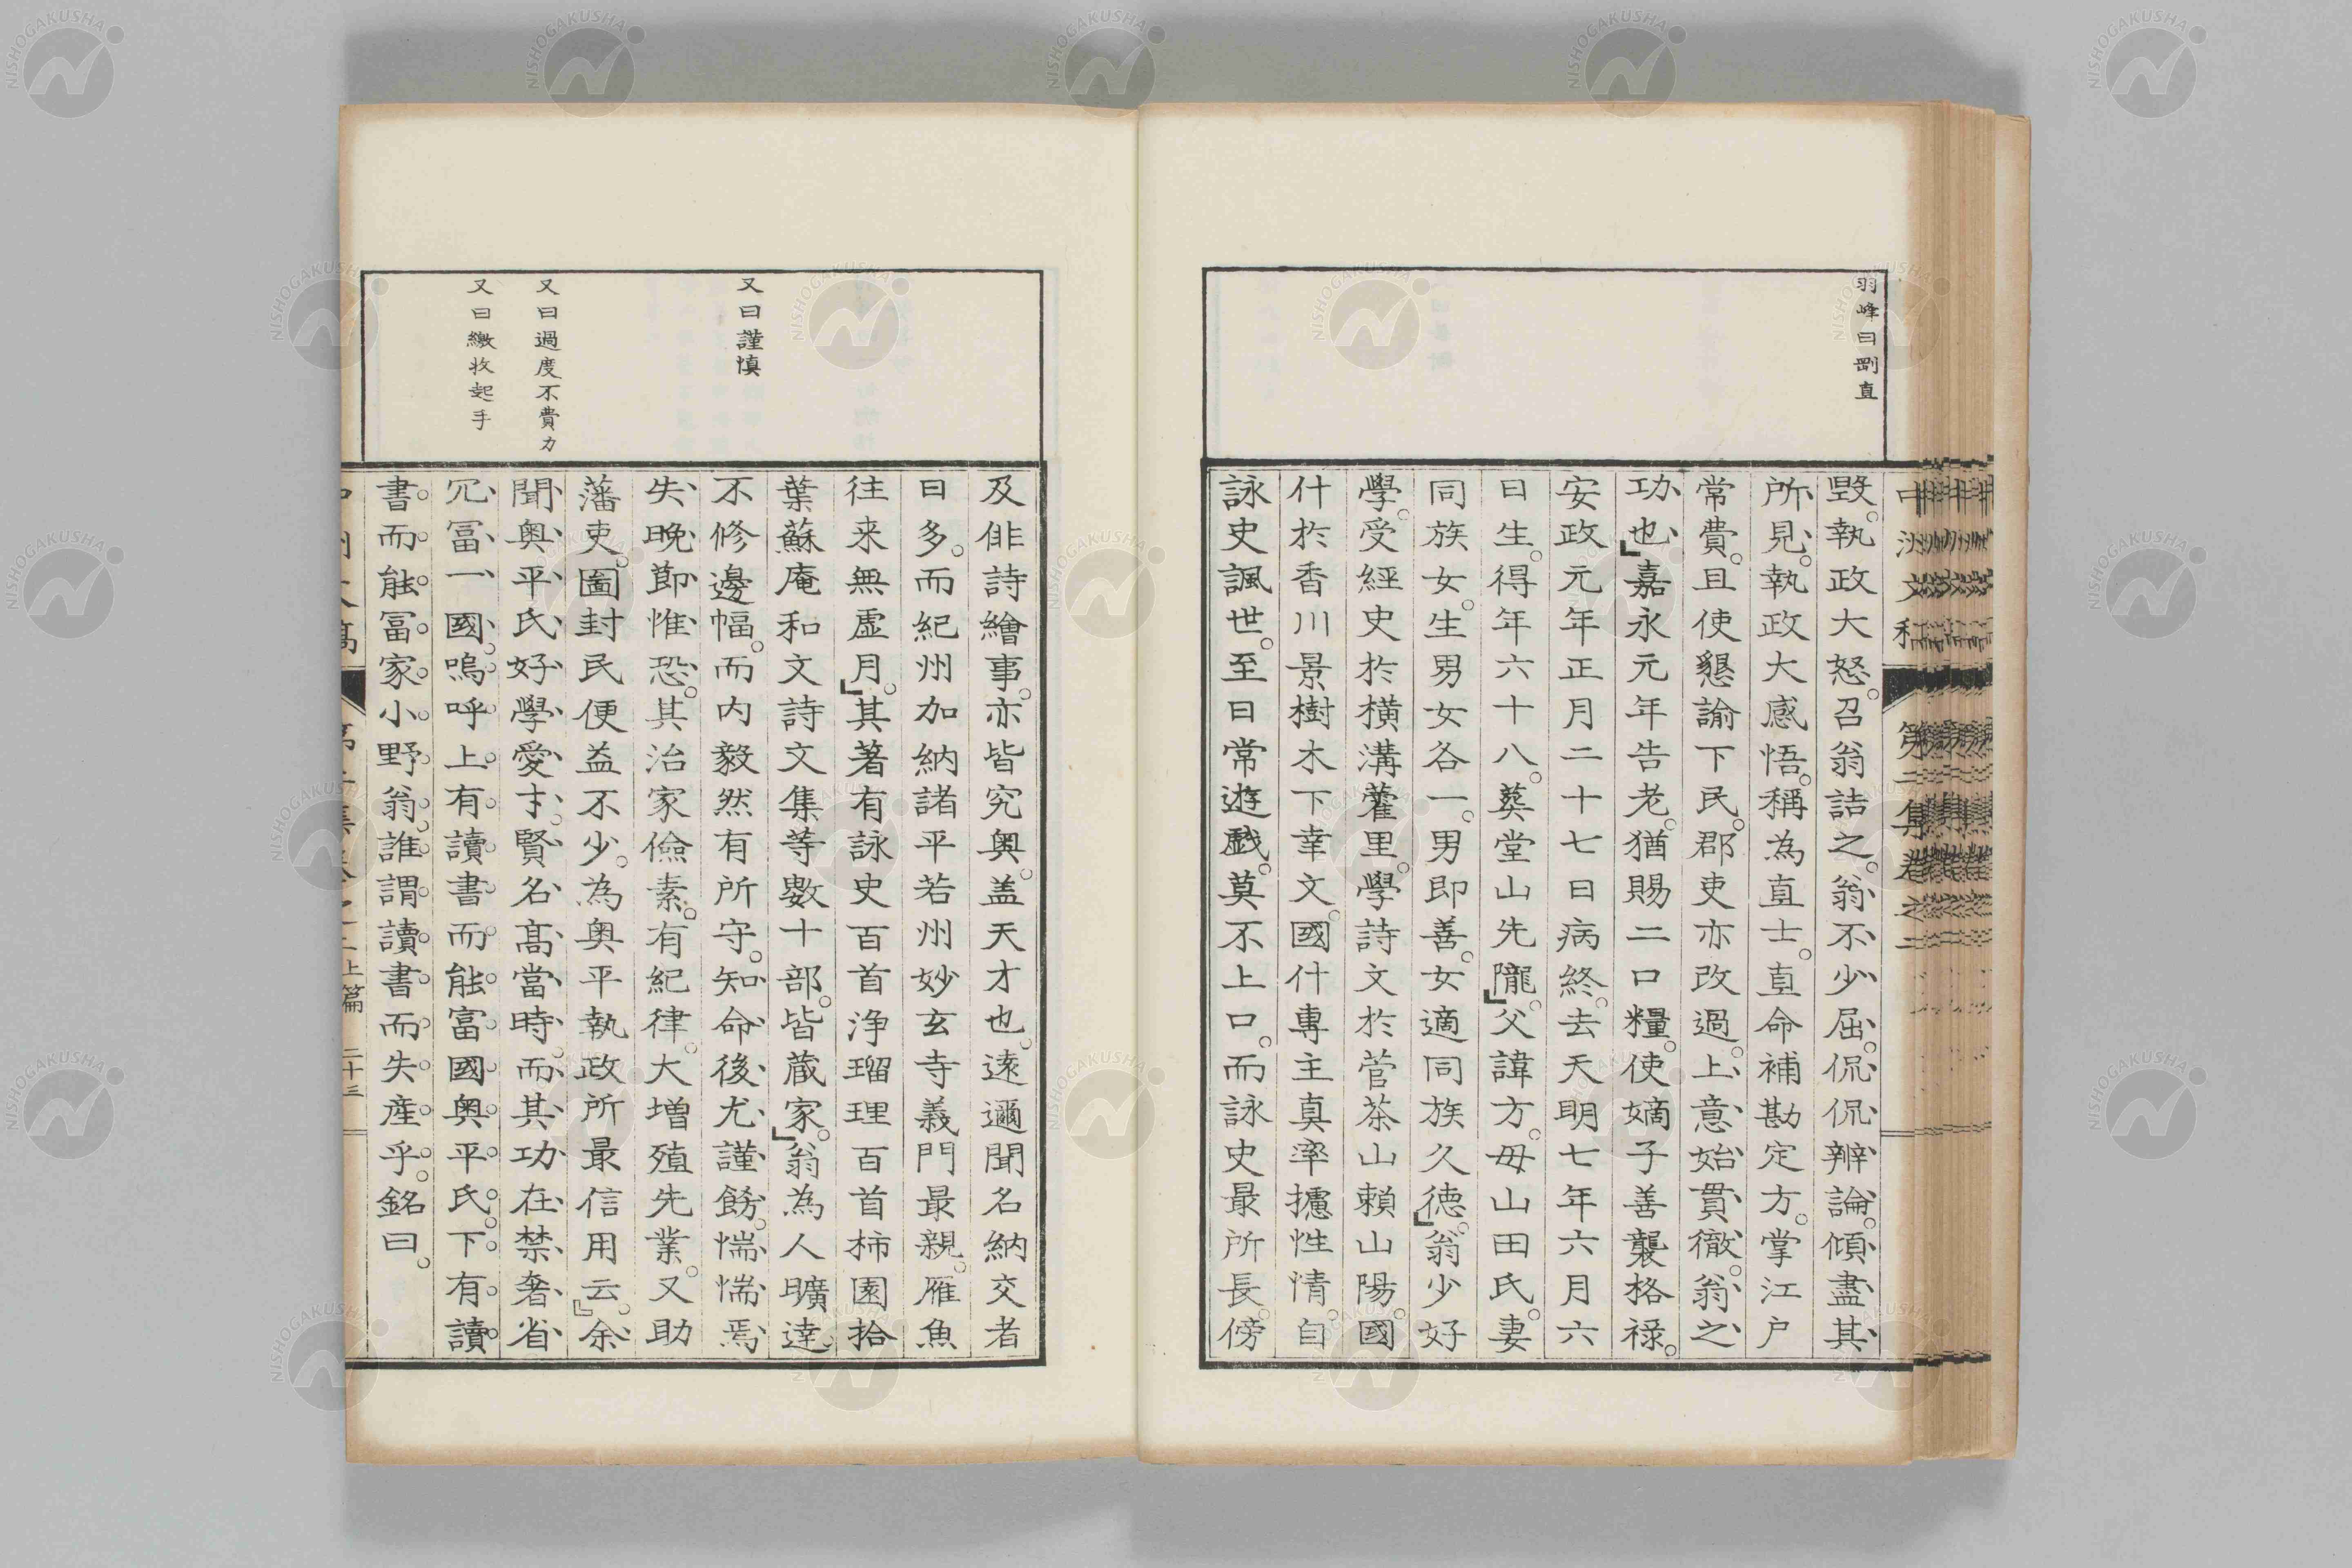 羽峰曰剛直
毀。執政大怒。召翁詰之。翁不少屈。侃侃辨論。傾盡其
所見。執政大感悟。稱為直士。直命補勘定方。掌江戶
常費。且使懇諭下民。郡吏亦改過。上意始貫徹。翁之
功也。」嘉永元年告老。猶賜二口糧。使嫡子善襲格祿。
安政元年正月二十七日病終。去天明七年六月六
日生。得年六十八。葬堂山先隴。」父諱方。母山田氏。妻
同族女。生男女各一。男即善。女適同族久德。」翁少好
學。受經史於橫溝藿里。學詩文於菅茶山賴山陽。國
什於香川景樹木下幸文。國什專主真率攄性情。自
詠史諷世。至日常遊戲。莫不上口。而詠史最所長。傍
又曰謹慎
又曰過度不費力
又曰繳收起手
及俳詩繪事。亦皆究奧。盖天才也。遠邇聞名納交者
日多。而紀州加納諸平若州妙玄寺義門最親。雁魚
往来無虛月。」其著有詠史百首浄瑠理百首柿園拾
葉蘇庵和文詩文集等數十部。皆蔵家。」翁為人曠達。
不修邊幅。而内毅然有所守。知命後尤謹飭。惴惴焉
失晚節惟恐。其治家儉素。有紀律。大增殖先業。又助
藩吏。圖封民便益不少。為奥平執政所最信用云。」余
聞奥平氏好學愛才。賢名高當時。而其功在禁奢省
冗富一國。嗚呼上有讀書而能富國奥平氏。下有讀
書而能富家小野翁。誰謂讀書而失產乎。銘曰。
上篇
二十三